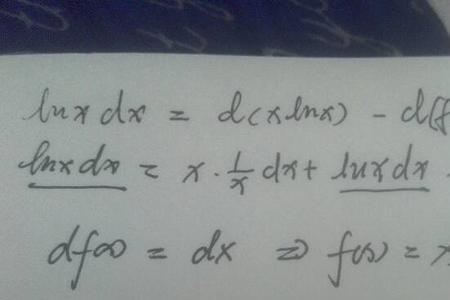 lnx dx = d(x lnx) - d(f
lnx dx = x · 1/x dx + lnx dx -
df(x) = dx ⇒ f(x) = x